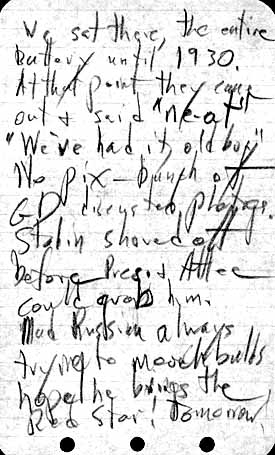 We sat there, the entire
Battery until 1930.
At that point they came
out & said "neat"
"We've had it, old boy"
No pix – bunch of
GD disgusted photogs.
Stalin shoved off
before Pres. & Attlee
could grab him.
Mad Russian always
trying to mooch bulbs
hope he brings the
Red Star! Tomorrow!